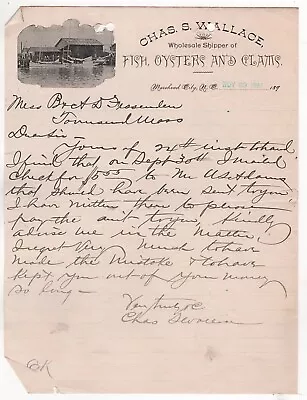 CHAS. S. WALLACE,
Wholesale Shipper of
FISH, OYSTERS AND CLAMS.
Morehead City, N. C. NOV 189
Mess Br & A D Fessenden
Townsend Mass
Dear Sir
Yours of 24th inst to hand
I find that on Sept 30th I mailed
Check for to Mr Adams
that should have been sent to you
I have written them to please
pay the am't to you, kindly
advise me in the matter,
I regret Very Much to have
made the Mistake & to have
kept you out of your money
so long —
Yours truly
Chas S Wallace
OK